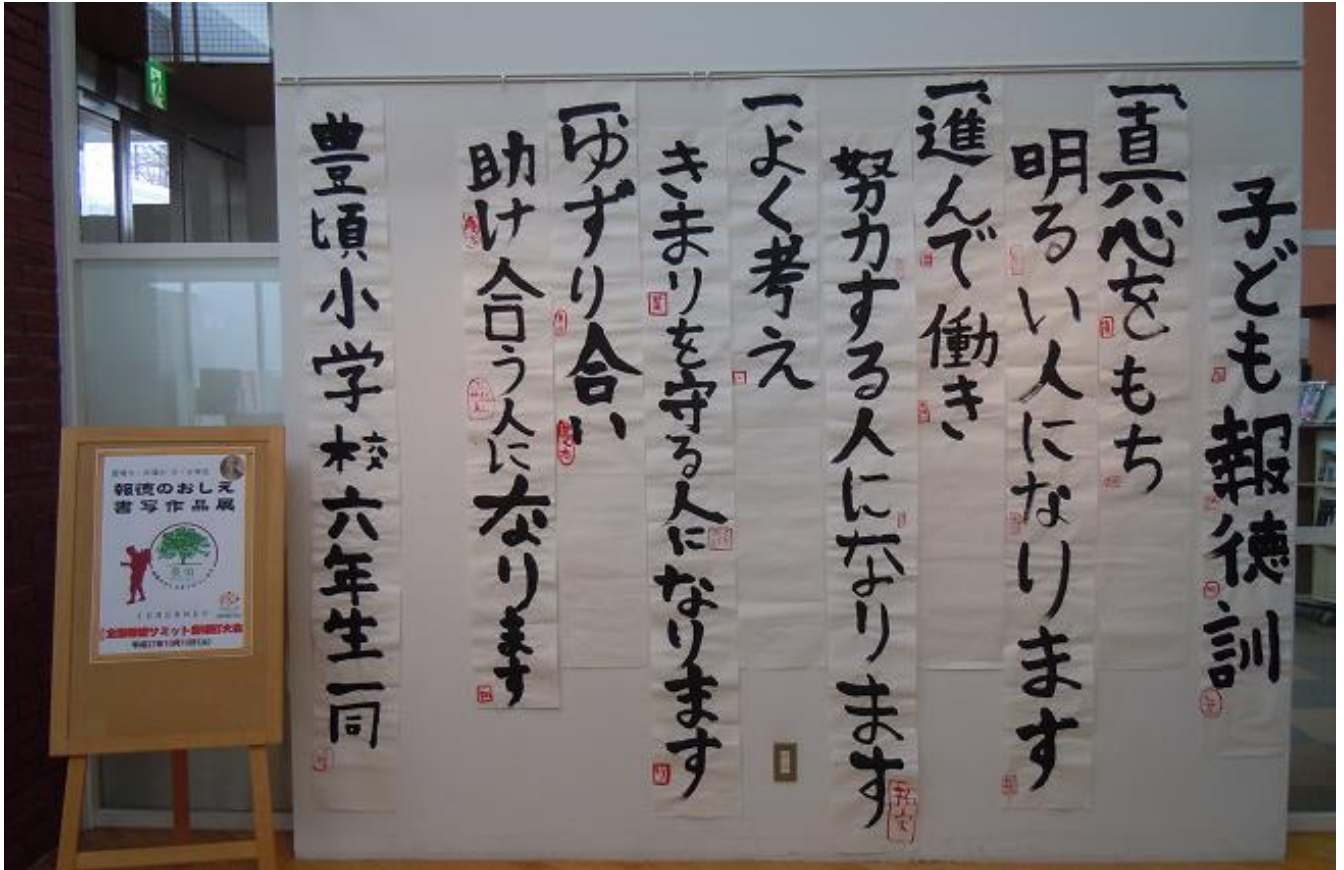 子ども報徳訓
一真心をもち
明るい人になります
一進んで働き
努力する人になります
一よく考え
きまりを守る人になります
一ゆずり合い
助け合う人になります
豊頃小学校六年生一同
報徳のおしえ
書写作品展
全国報徳サミット豊頃町大会